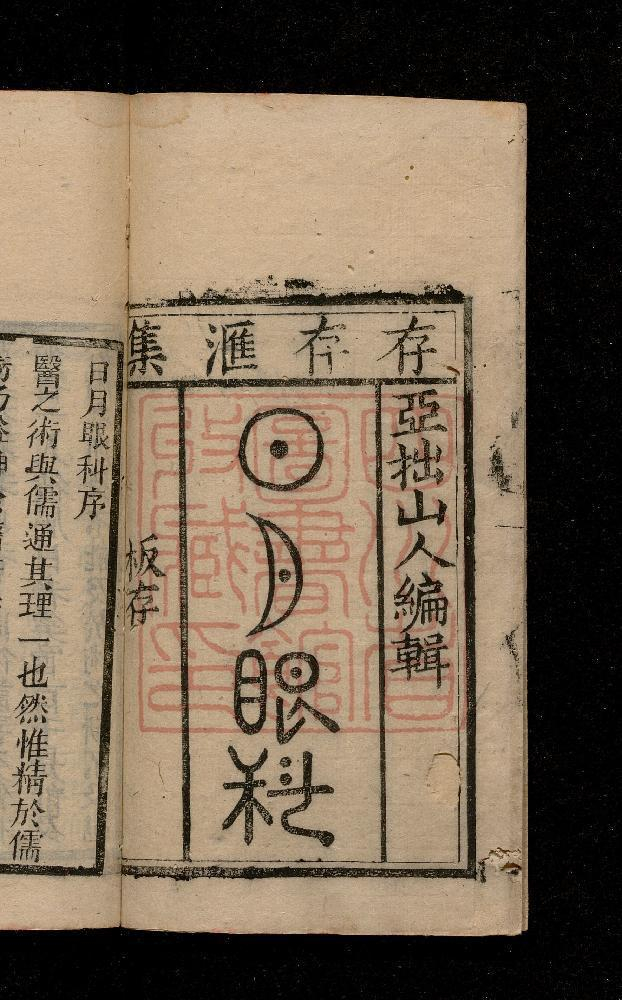 存存滙集
亞拙山人編輯
日月眼科
板存
四川省
圖書館
藏印
日月眼科序
醫之術與儒通其理一也然惟精於儒